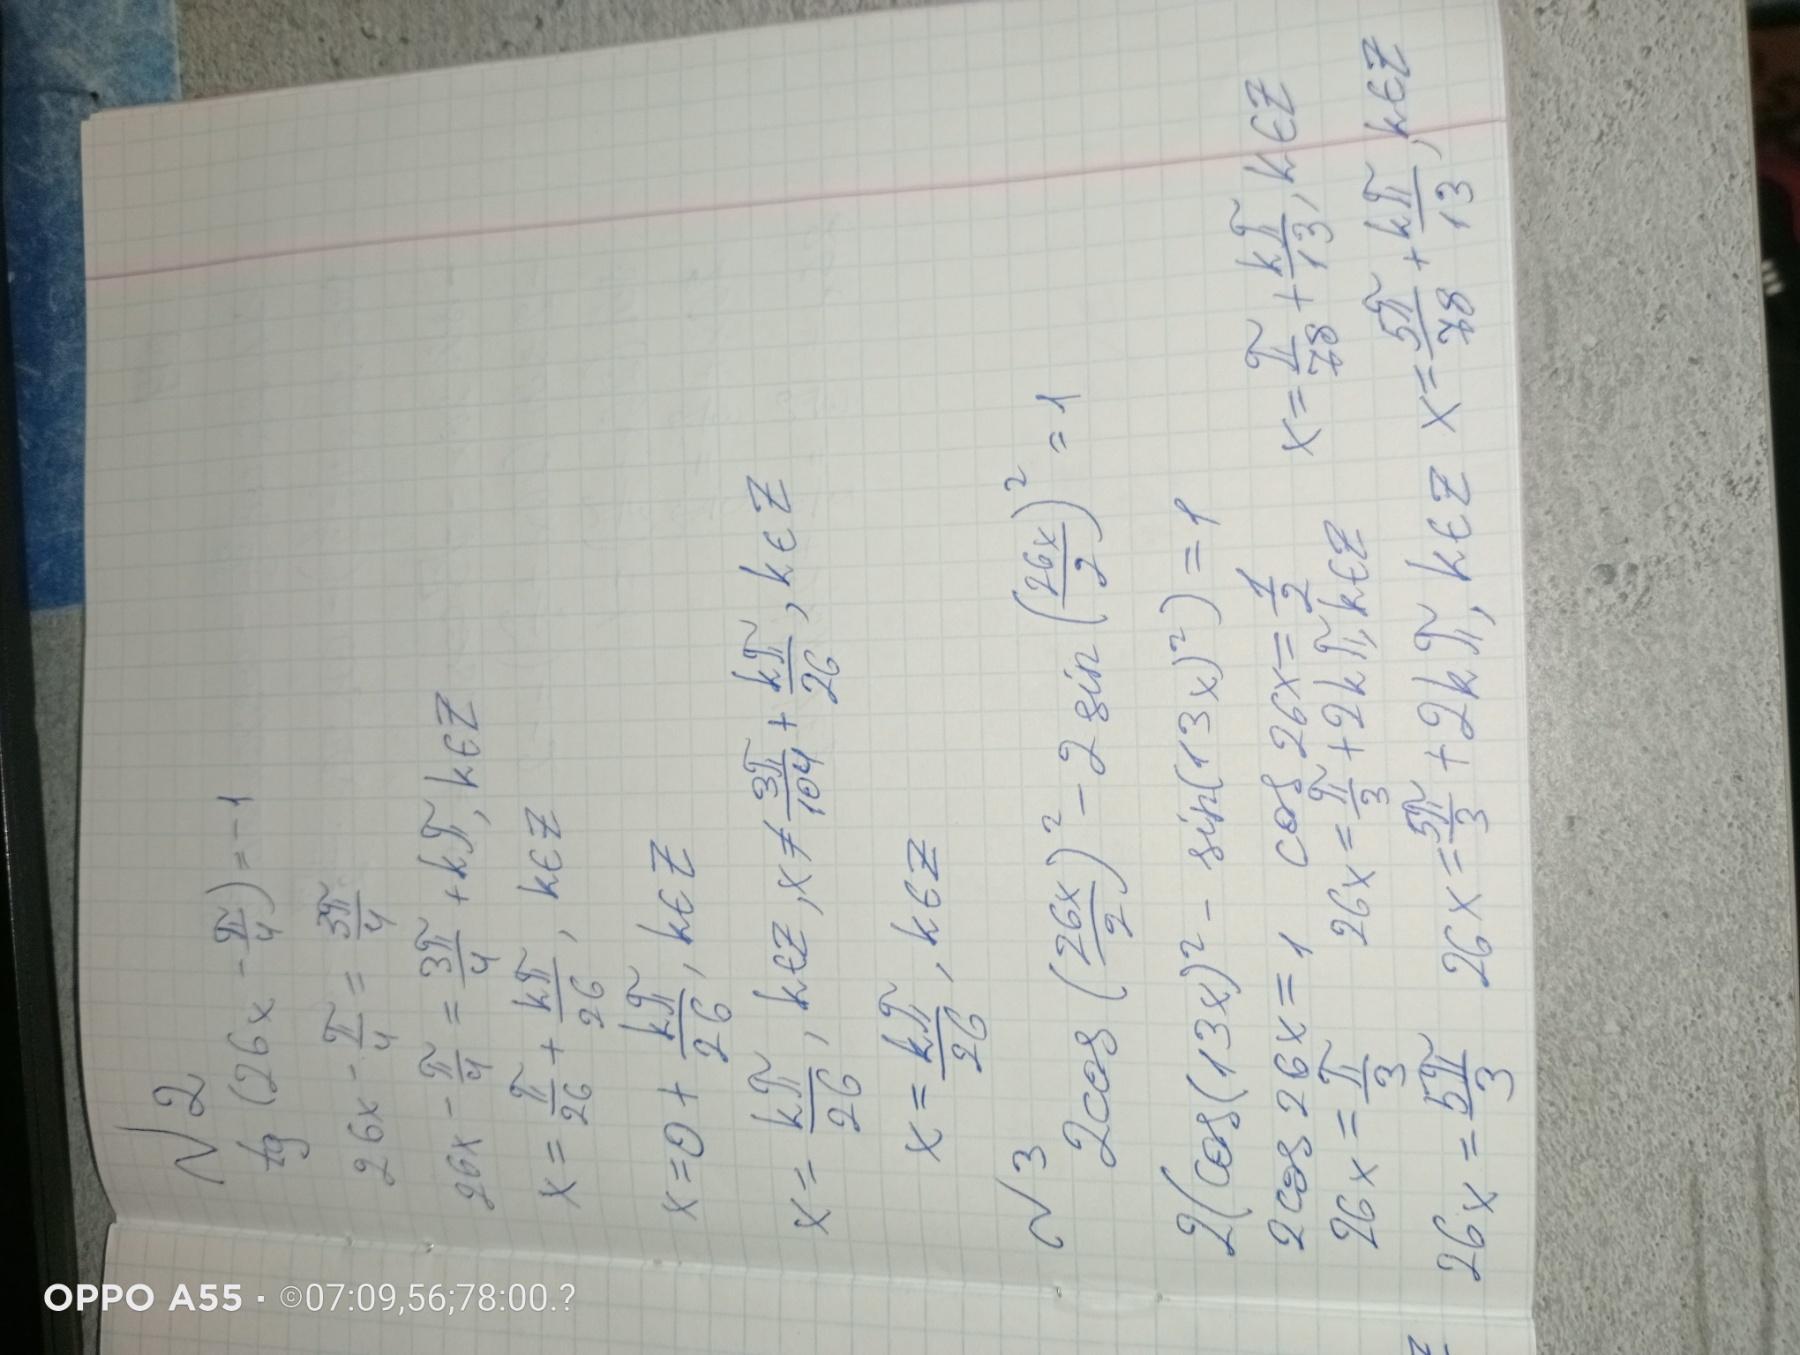 №2
tg(26x - π/4) = -1
26x - π/4 = 3π/4
26x - π/4 = 3π/4 + kπ, k∈Z
x = π/26 + kπ/26, k∈Z
x = 0 + kπ/26, k∈Z
x = kπ/26, k∈Z, x ≠ 3π/104 + kπ/26, k∈Z
x = kπ/26, k∈Z
№3
2cos(26x/2)² - 2sin(26x/2)² = 1
2(cos(13x)² - sin(13x)²) = 1
2cos26x = 1 cos26x = 1/2
26x = π/3 26x = π/3 + 2kπ, k∈Z x = π/78 + kπ/13, k∈Z
26x = 5π/3 26x = 5π/3 + 2kπ, k∈Z x = 5π/78 + kπ/13, k∈Z
OPPO A55 · ©07:09,56;78:00.?